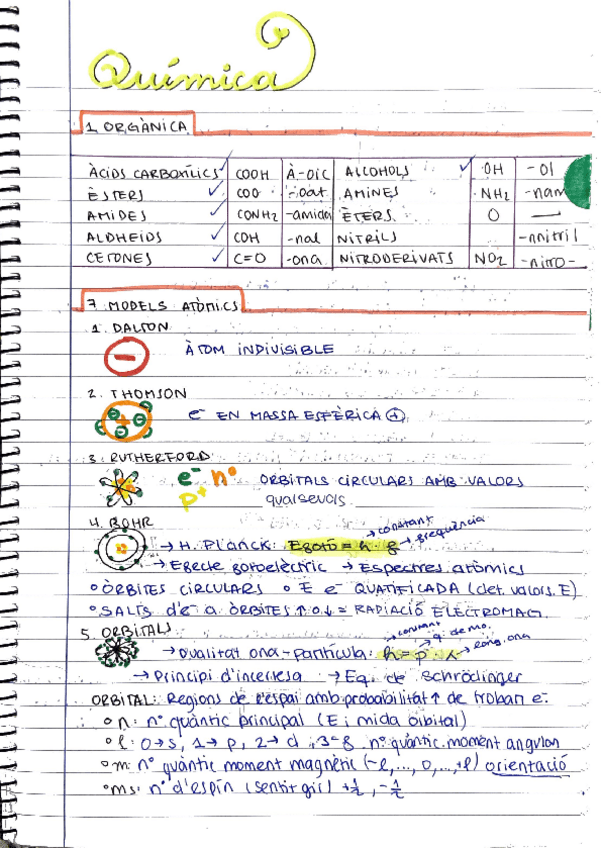 Química
1. ORGÀNICA
ÀCIDS CARBOXÍLICS ✓ COOH À-OIC ALCOHOLS ✓ OH -Ol
ÈSTERS ✓ COO -oat AMINES NH₂ -nam
AMIDES ✓ CONH₂ -amida ÈTERS O —
ALDHEIDS ✓ COH -nal NITRILS -nnitril
CETONES ✓ C=O -ona NITRODERIVATS NO₂ -nitro-
7. MODELS ATÒMICS
1. DALTON
ÀTOM INDIVISIBLE
2. THOMSON
e⁻ EN MASSA ESFÈRICA ⊕
3. RUTHERFORD
e⁻ n° ORBITALS CIRCULARS AMB VALORS
p⁺ qualsevols
4. BOHR
→ constant
→ H. Planck: Efotó = h · f → freqüència
→ Efecte fotoelèctric → Espectres atòmics
° ÒRBITES CIRCULARS ° E e⁻ QUANTIFICADA (det. valors E)
° SALTS d'e⁻ a ÒRBITES ↑ o ↓ = RADIACIÓ ELECTROMAG.
5. ORBITALS
→ constant → q. de mo. → long. ona
→ Dualitat ona-partícula: h = p · λ
→ Principi d'incertesa → Eq. de Schrödinger
ORBITAL: Regions de l'espai amb probabilitat ↑ de trobar e⁻
° n: n° quàntic principal (E i mida orbital)
° l: 0→s, 1→p, 2→d, 3=f n° quàntic moment angular
° m: n° quàntic moment magnètic (-l, ..., 0, ..., +l) orientació
° ms: n° d'espín (sentit gir) +½, -½